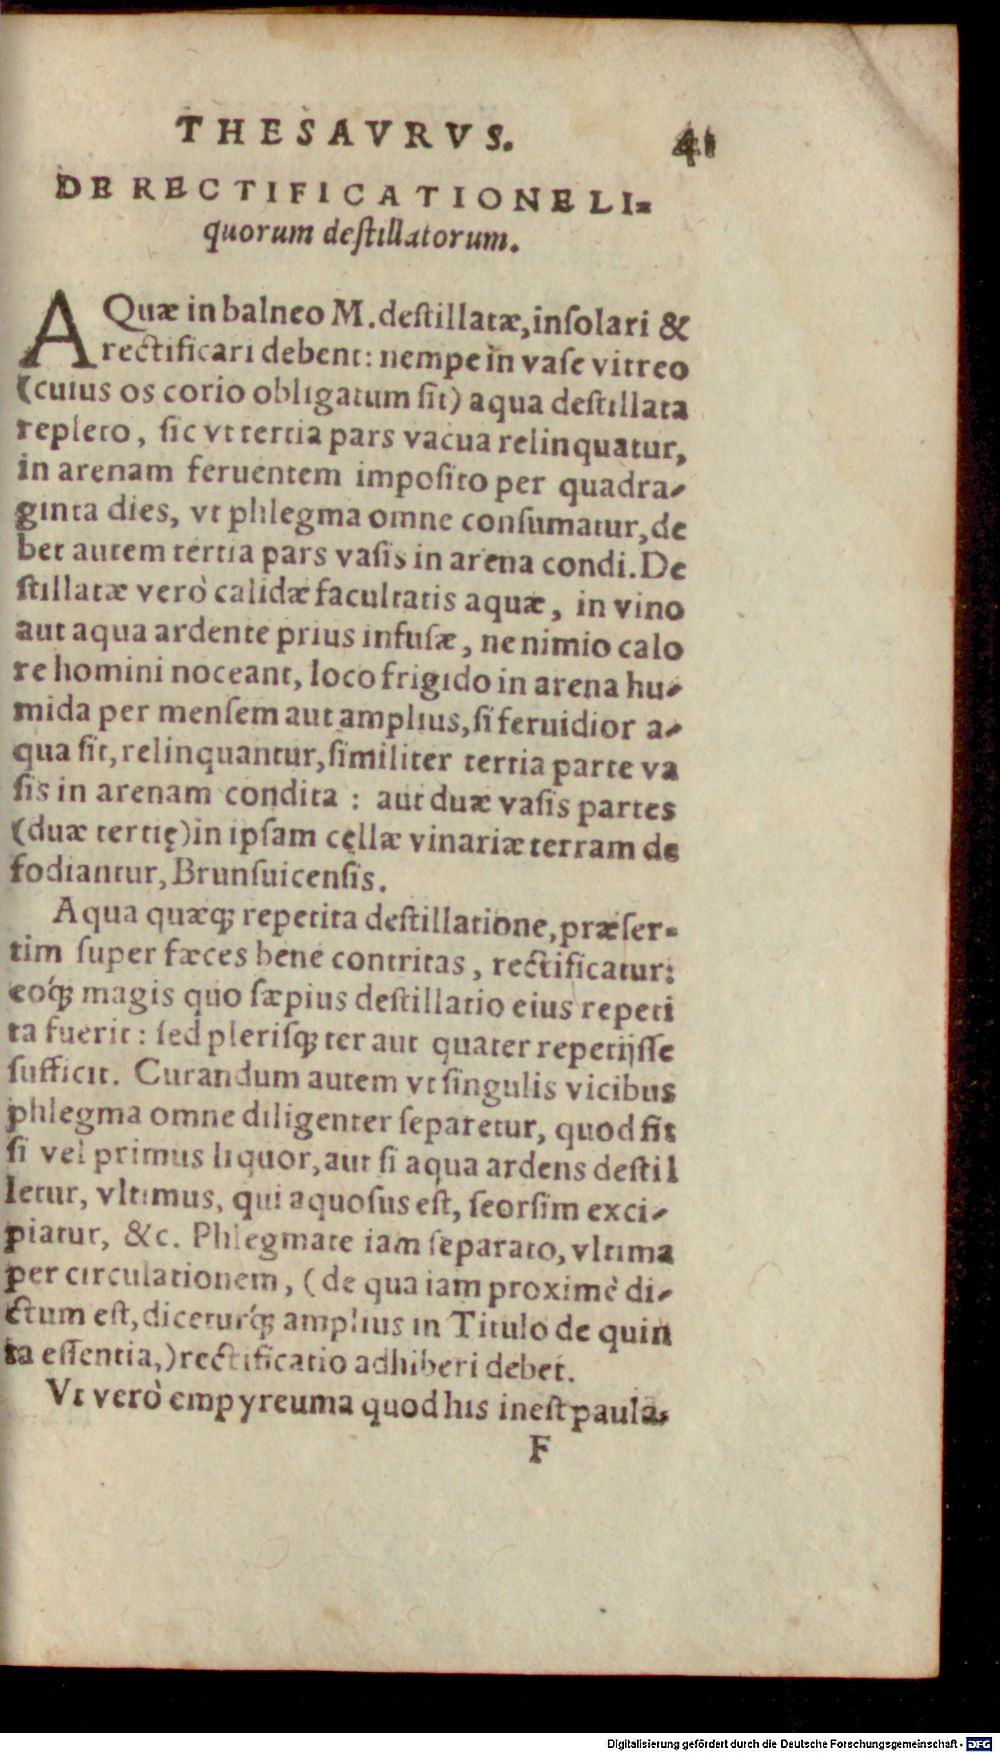 THESAVRVS. 41
DE RECTIFICATIONE LI=
quorum deſtillatorum.
AQuæ in balneo M. deſtillatæ, inſolari &
rectificari debent: nempe in vaſe vitreo
(cuius os corio obligatum ſit) aqua deſtillata
repleto, ſic vt tertia pars vacua relinquatur,
in arenam feruentem impoſito per quadra-
ginta dies, vt phlegma omne conſumatur, de
bet autem tertia pars vaſis in arena condi. De
ſtillatæ verò calidæ facultatis aquæ, in vino
aut aqua ardente prius infuſæ, ne nimio calo
re homini noceant, loco frigido in arena hu-
mida per menſem aut amplius, ſi feruidior a-
qua ſit, relinquantur, ſimiliter tertia parte va
ſis in arenam condita : aut duæ vaſis partes
(duæ tertię) in ipſam cęllæ vinariæ terram de
fodiantur, Brunſuicenſis.
Aqua quæq; repetita deſtillatione, præſer=
tim ſuper fæces bene contritas, rectificatur:
eóq; magis quo ſæpius deſtillatio eius repeti
ta fuerit : ſed pleriſq; ter aut quater repetijſſe
ſufficit. Curandum autem vt ſingulis vicibus
phlegma omne diligenter ſeparetur, quod fit
ſi vel primus liquor, aut ſi aqua ardens deſtil
letur, vltimus, qui aquoſus eſt, ſeorſim exci-
piatur, &c. Phlegmate iam ſeparato, vltima
per circulationem, (de qua iam proximè di-
ctum eſt, diceturq́; amplius in Titulo de quin
ta eſſentia,) rectificatio adhiberi debet.
Vt verò empyreuma quod his ineſt paula-
F
Digitalisierung gefördert durch die Deutsche Forschungsgemeinschaft - DFG